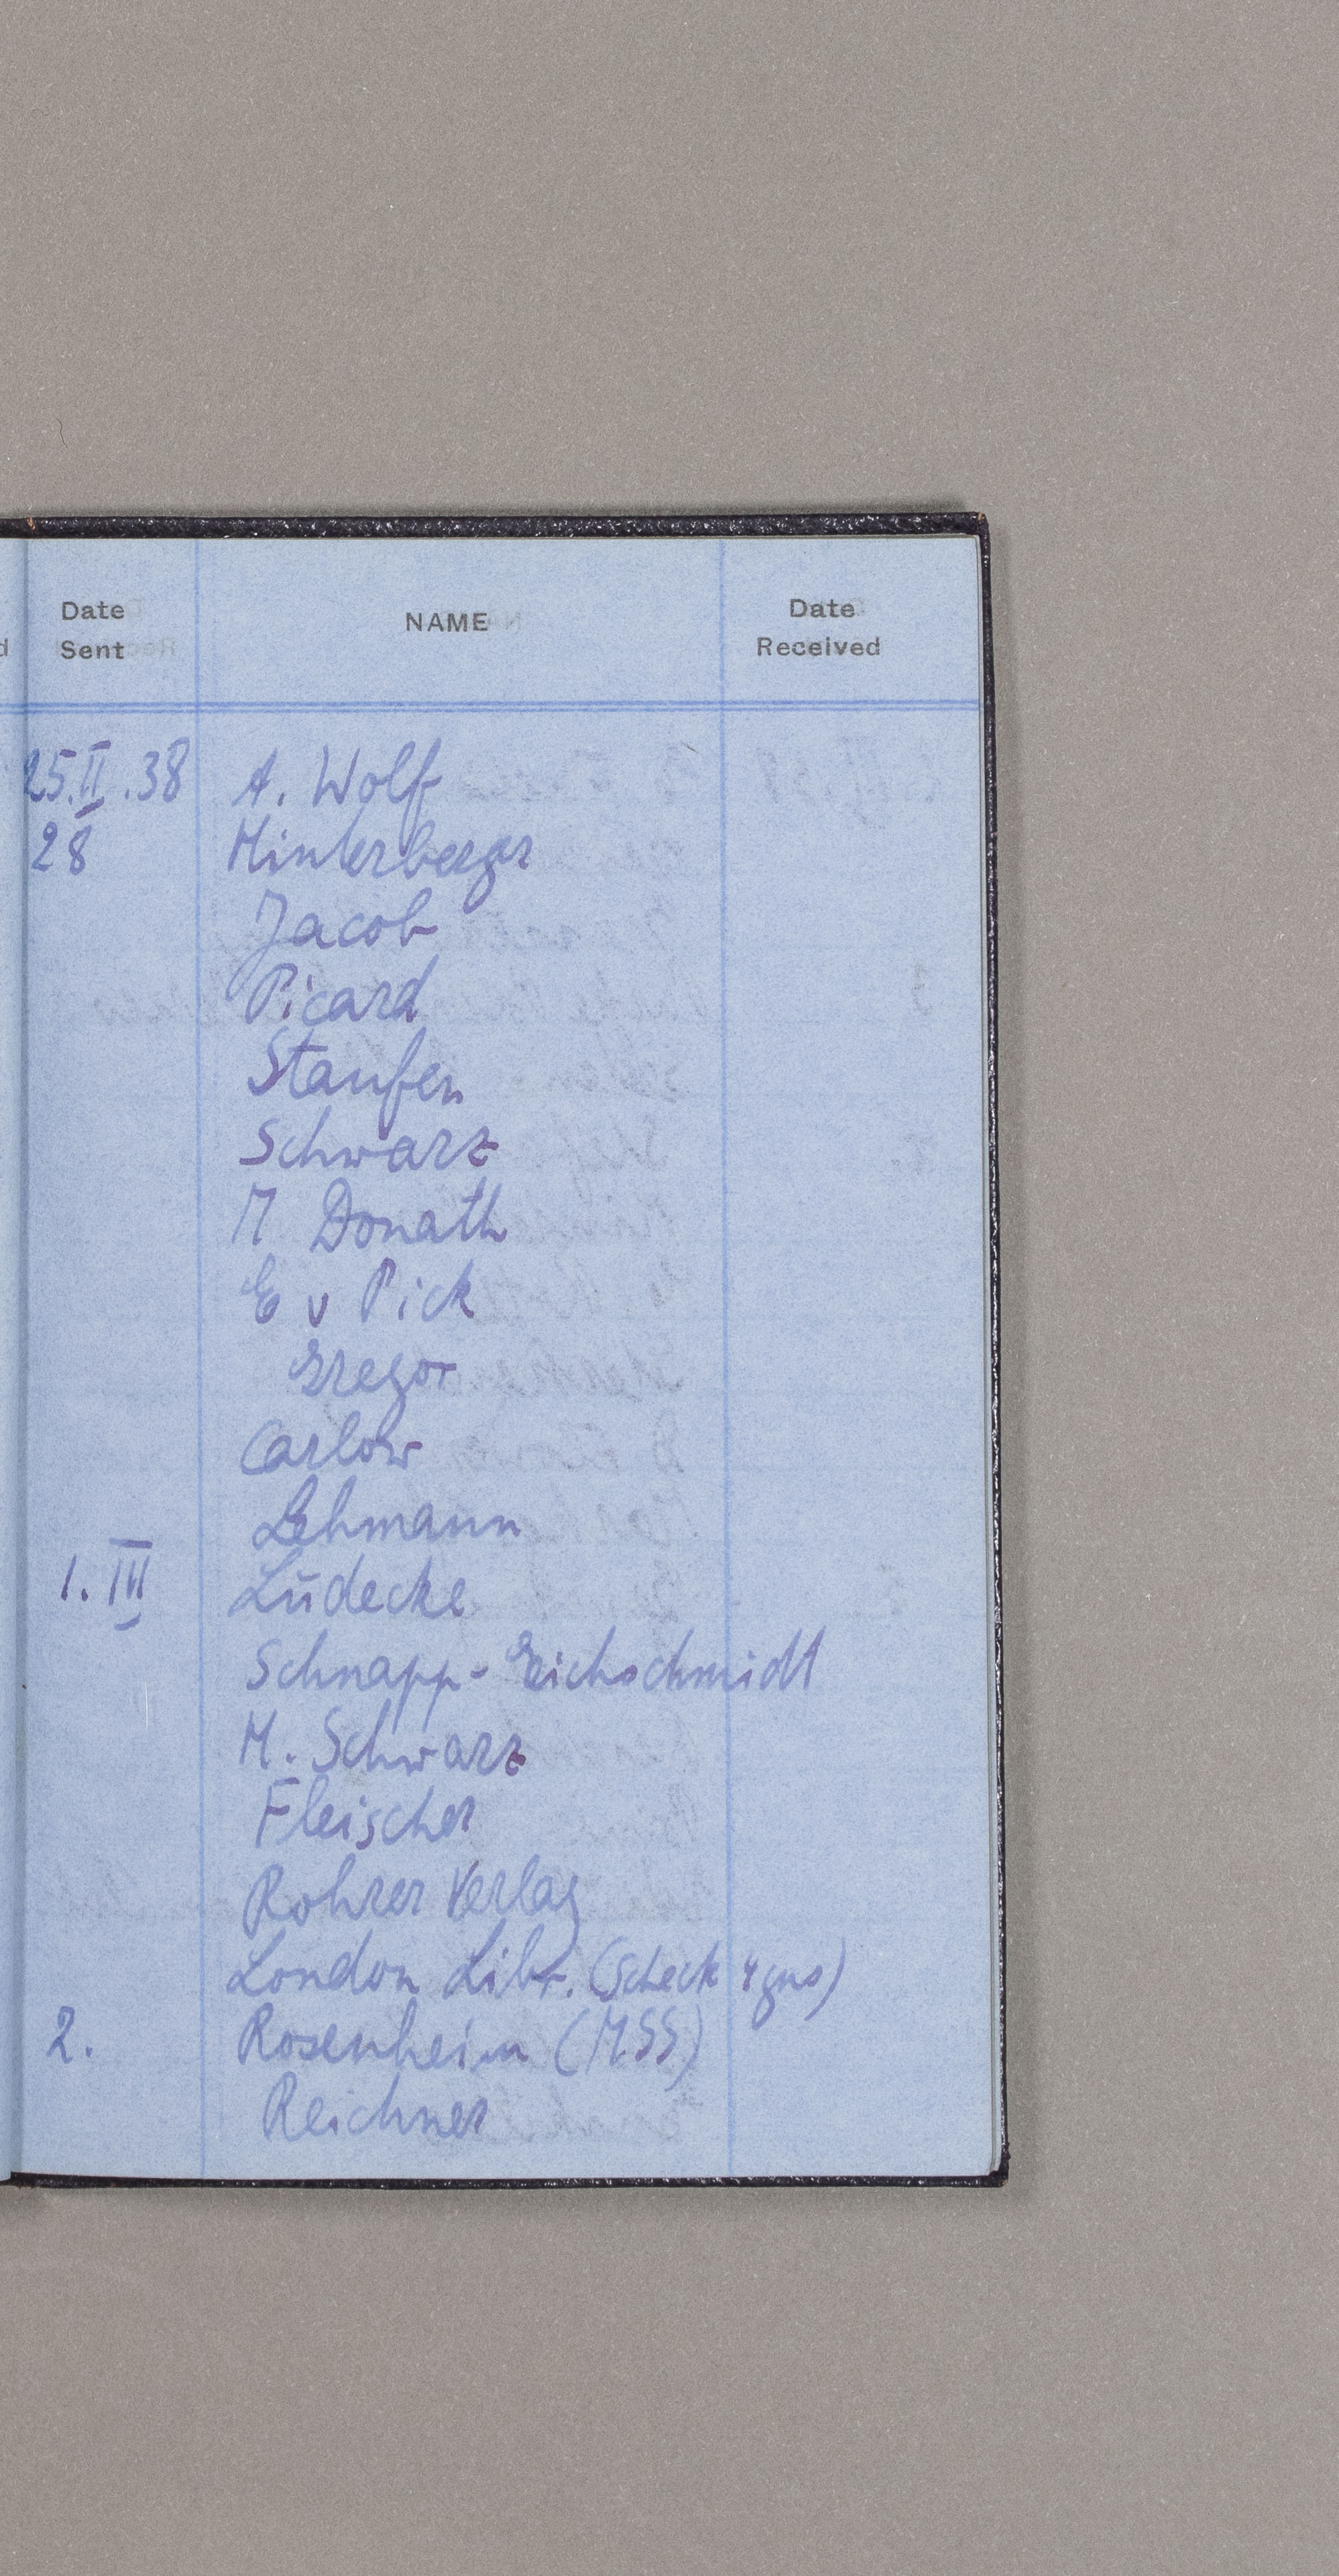 Date Sent NAME Date Received
25.II.38 A. Wolf
28 Hinterberger
Jacob
Picard
Staufen
Schwarz
M Donath
E v Pick
Gregor
Carlow
Lehmann
1. III Lüdecke
Schnapp - Eichschmidt
M. Schwarz
Fleischer
Rohrer Verlag
London Libr. (Scheck 4 gns)
2. Rosenheim (MSS)
Reichner